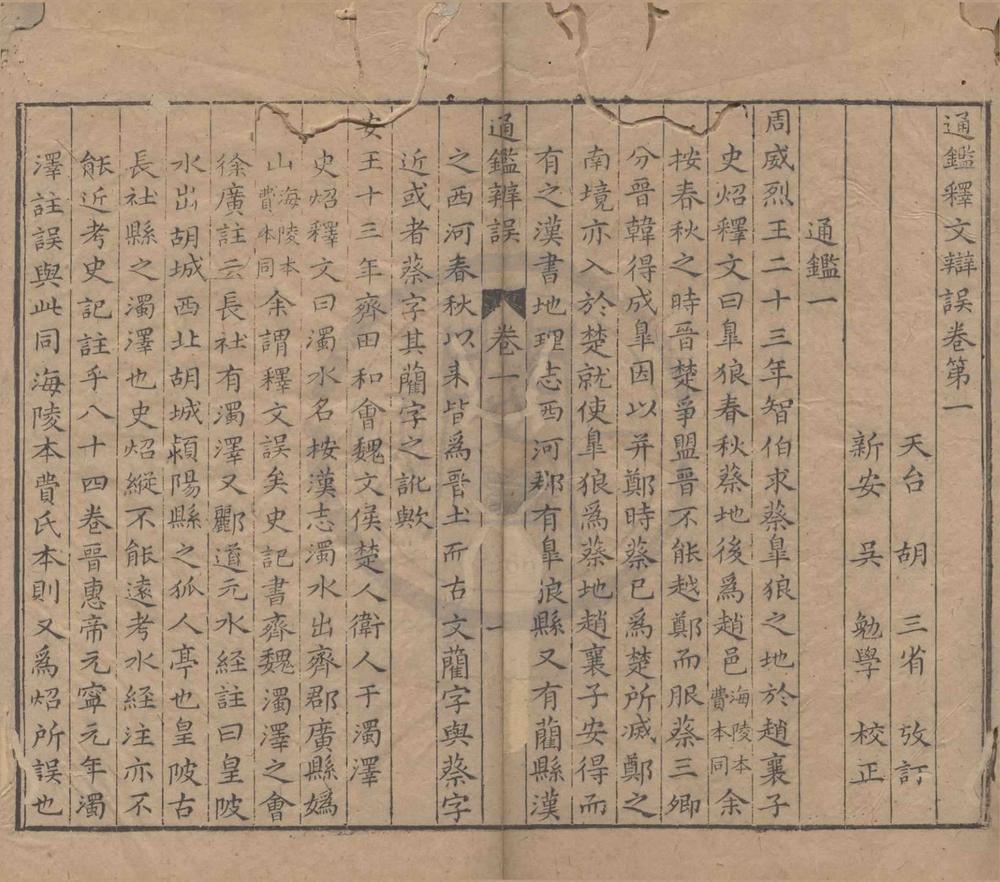 通鑑釋文辯誤卷第一
天台 胡 三省 攷訂
新安 吳 勉學 校正
通鑑一
周威烈王二十三年智伯求蔡皐狼之地於趙襄子
史炤釋文曰皐狼春秋蔡地後爲趙邑海陵本費本同余
按春秋之時晉楚爭盟晉不能越鄭而服蔡三卿
分晉韓得成皐因以并鄭時蔡已爲楚所滅鄭之
南境亦入於楚就使皐狼爲蔡地趙襄子安得而
有之漢書地理志西河郡有皐狼縣又有藺縣漢
通鑑辨誤 卷一 一
之西河春秋以來皆爲晉土而古文藺字與蔡字
近或者蔡字其藺字之訛歟
安王十三年齊田和會魏文侯楚人衛人于濁澤
史炤釋文曰濁水名按漢志濁水出齊郡廣縣嬀
山海陵本費本同余謂釋文誤矣史記書齊魏濁澤之會
徐廣註云長社有濁澤又酈道元水經註曰皇陂
水出胡城西北胡城潁陽縣之狐人亭也皇陂古
長社縣之濁澤也史炤縱不能遠考水經注亦不
能近考史記註乎八十四卷晉惠帝元寧元年濁
澤註誤與此同海陵本費氏本則又爲炤所誤也